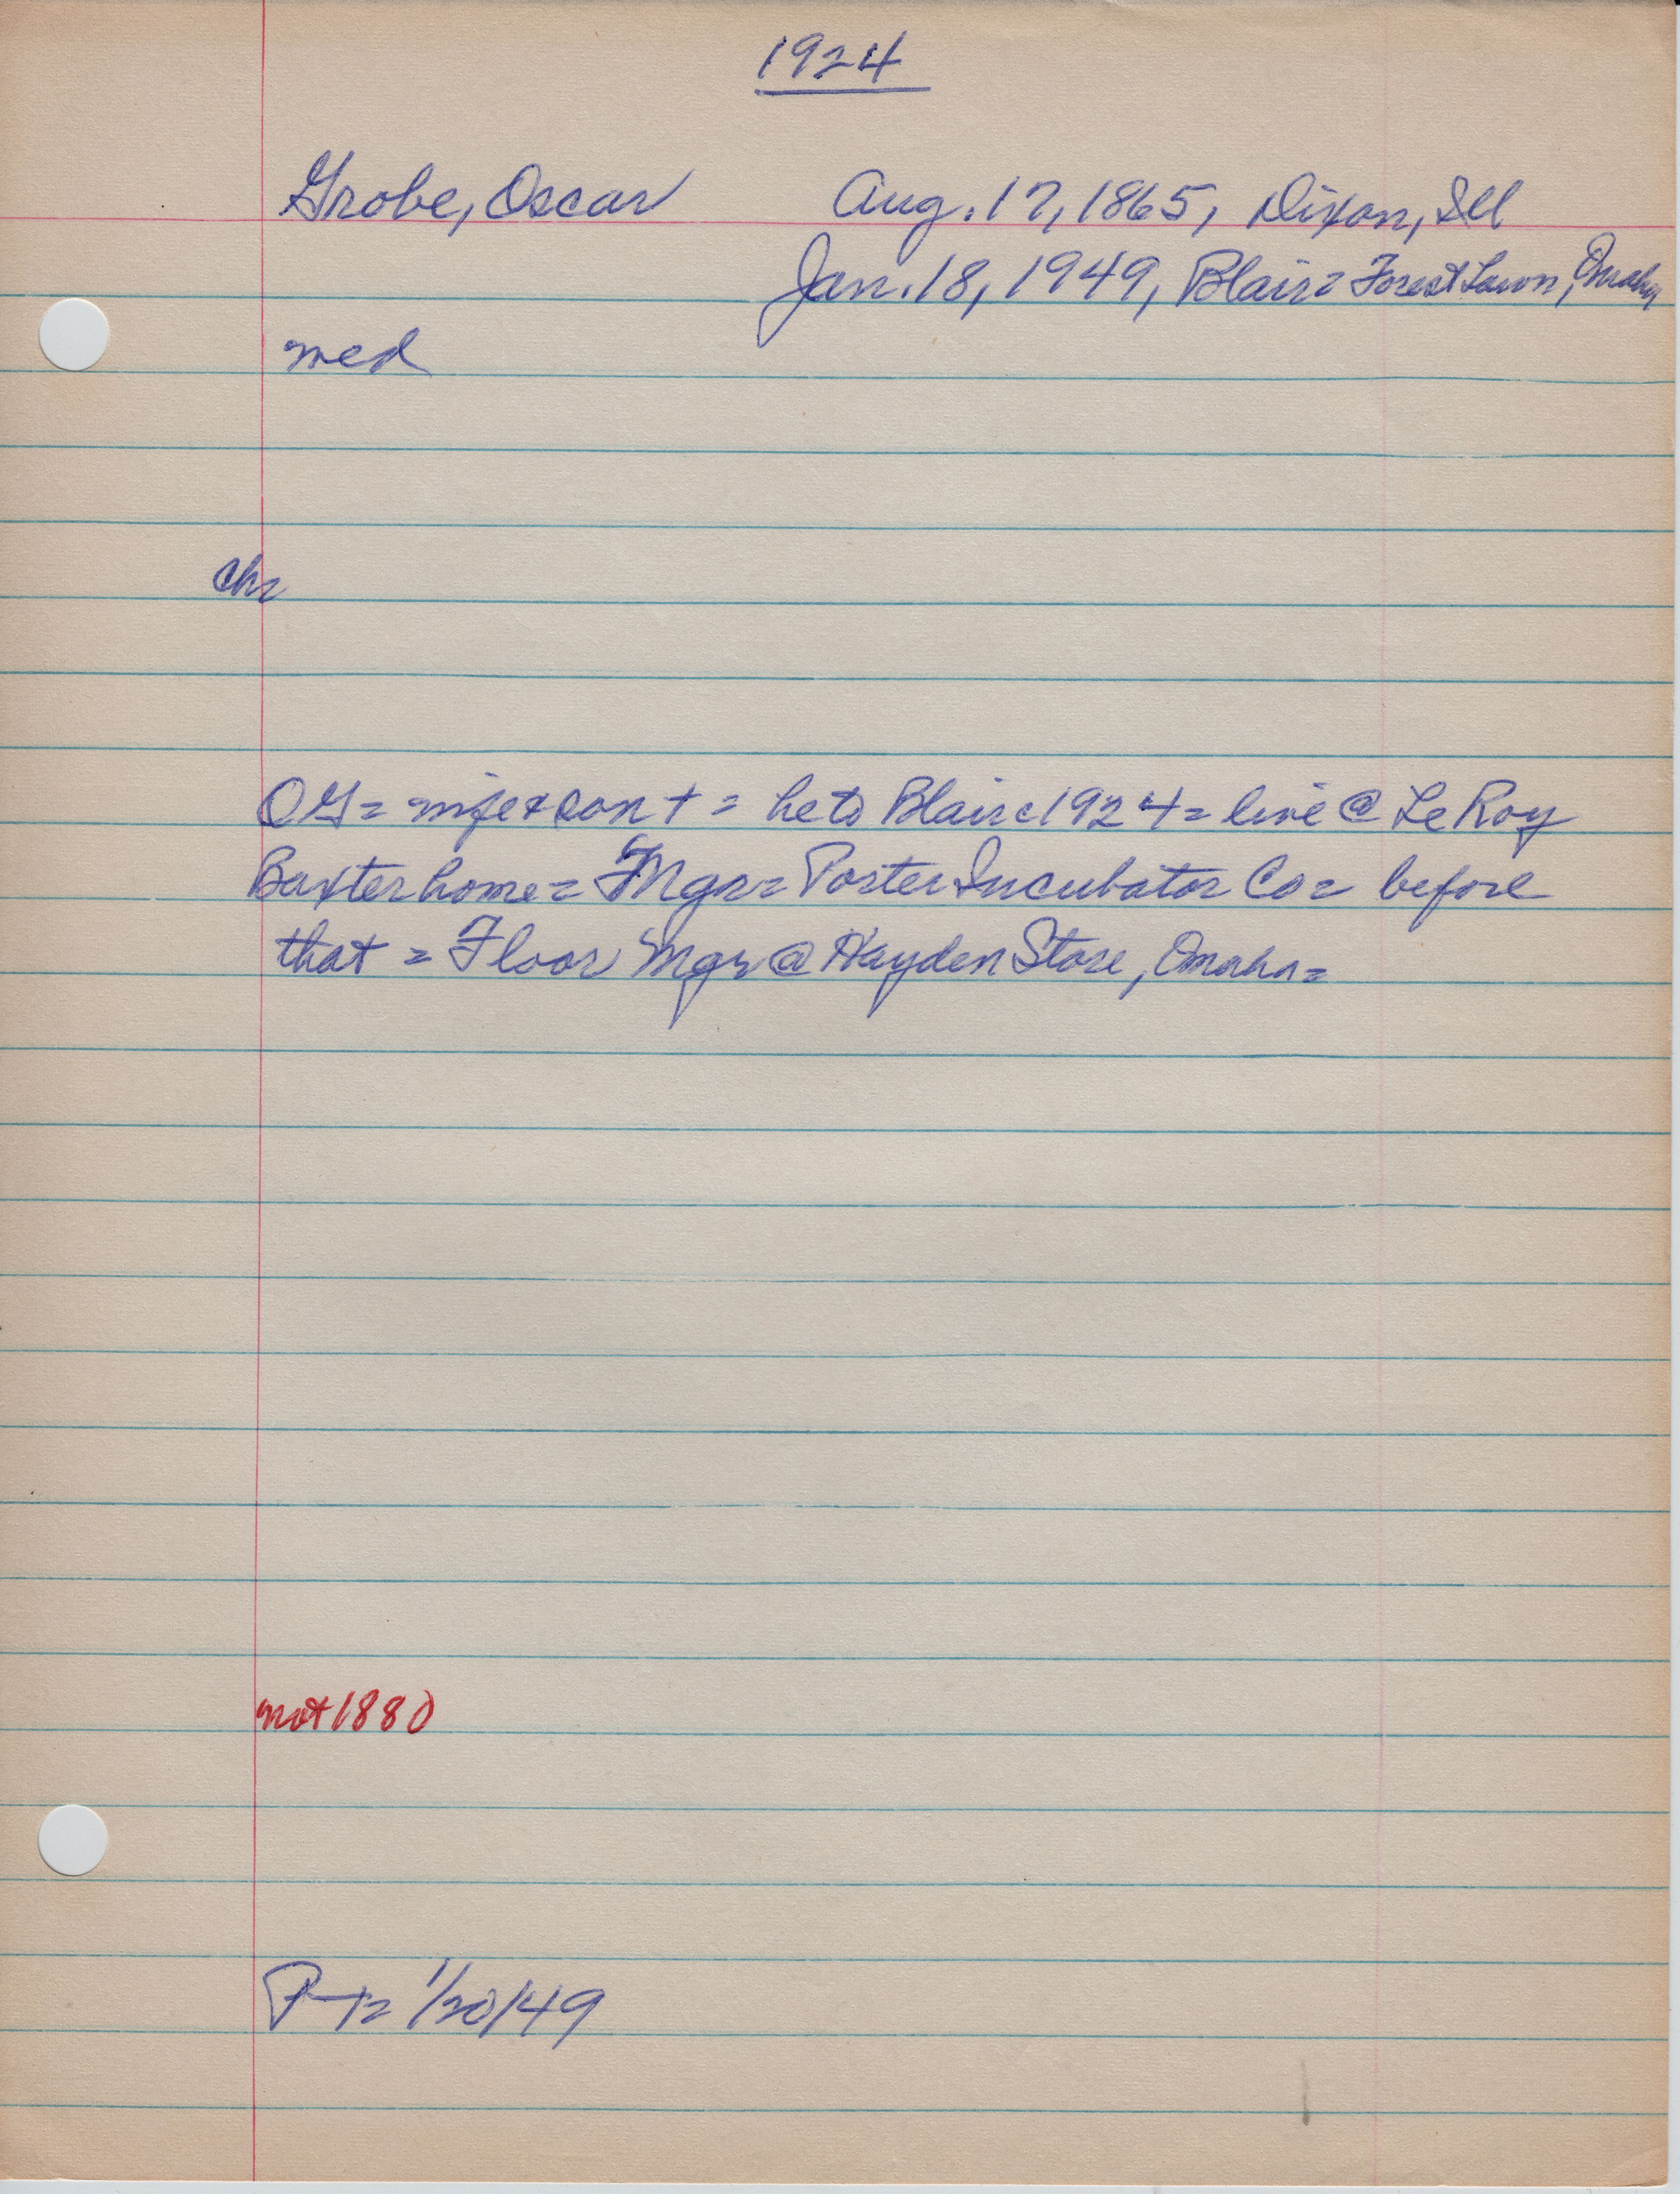 1924
Grobe, Oscar Aug. 17, 1865, Dixon, Ill
Jan. 18, 1949, Blair= Forest Lawn, Omaha
med
Ch=
OG= wife & son + = he to Blair c1924= live @ LeRoy
Baxter home= Mgr= Porter Incubator Co= before
that = Floor Mgr @ Hayden Store, Omaha=
not 1880
P-T= 1/20/49